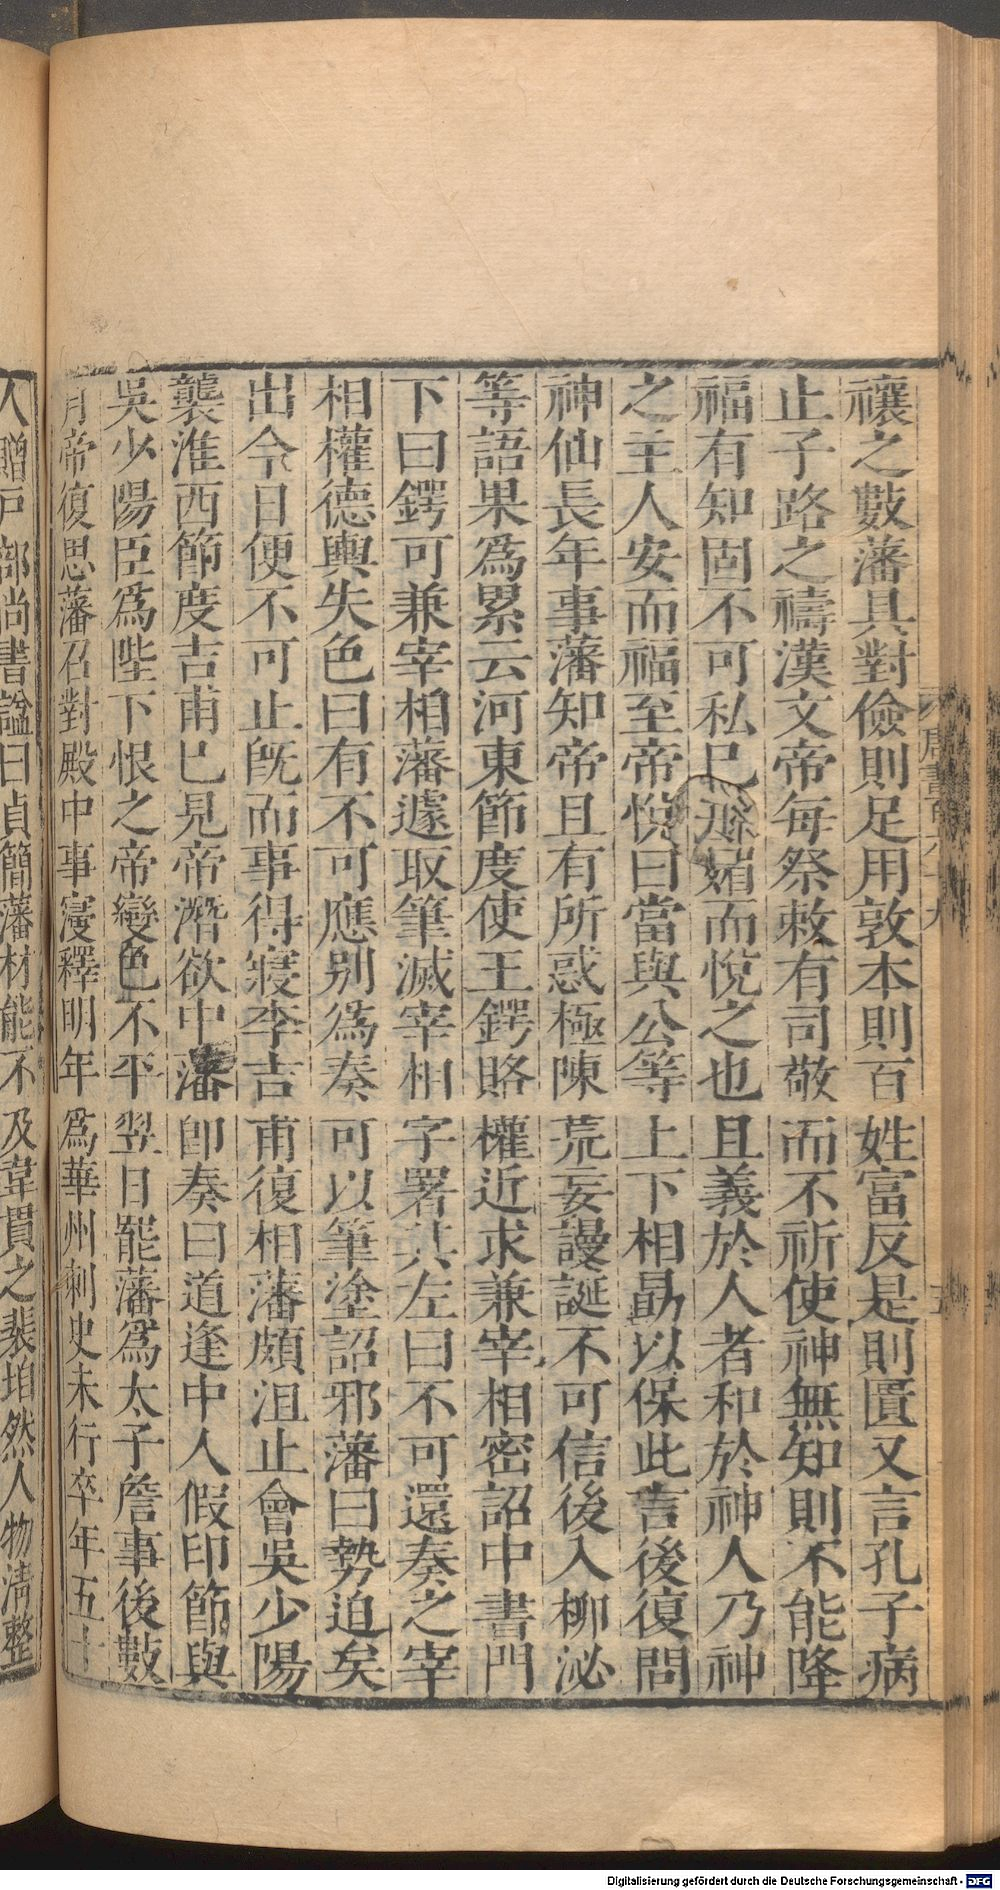 禳之數藩具對儉則足用敦本則百姓富反是則匱又言孔子病
止子路之禱漢文帝每祭敕有司敬而不祈使神無知則不能降
福有知固不可私巳媚而悅之也且義於人者和於神人乃神
之主人安而福至帝悅曰當與公等上下相勗以保此言後復問
神仙長年事藩知帝且有所惑極陳荒妄謾誕不可信後入柳泌
等語果爲累云河東節度使王鍔賂權近求兼宰相密詔中書門
下曰鍔可兼宰相藩遽取筆滅宰相字署其左曰不可還奏之宰
相權德輿失色曰有不可應别爲奏可以筆塗詔邪藩曰勢迫矣
出今日便不可止旣而事得寢李吉甫復相藩頗沮止會吳少陽
襲淮西節度吉甫巳見帝潛欲中藩卽奏曰道逢中人假印節與
吳少陽臣爲陛下恨之帝變色不平翌日罷藩爲太子詹事後數
月帝復思藩召對殿中事寖釋明年爲華州刺史未行卒年五十
人贈戶部尚書諡曰貞簡藩材能不及韋貫之裴垍然人物清整
唐書
Digitalisierung gefördert durch die Deutsche Forschungsgemeinschaft - DFG